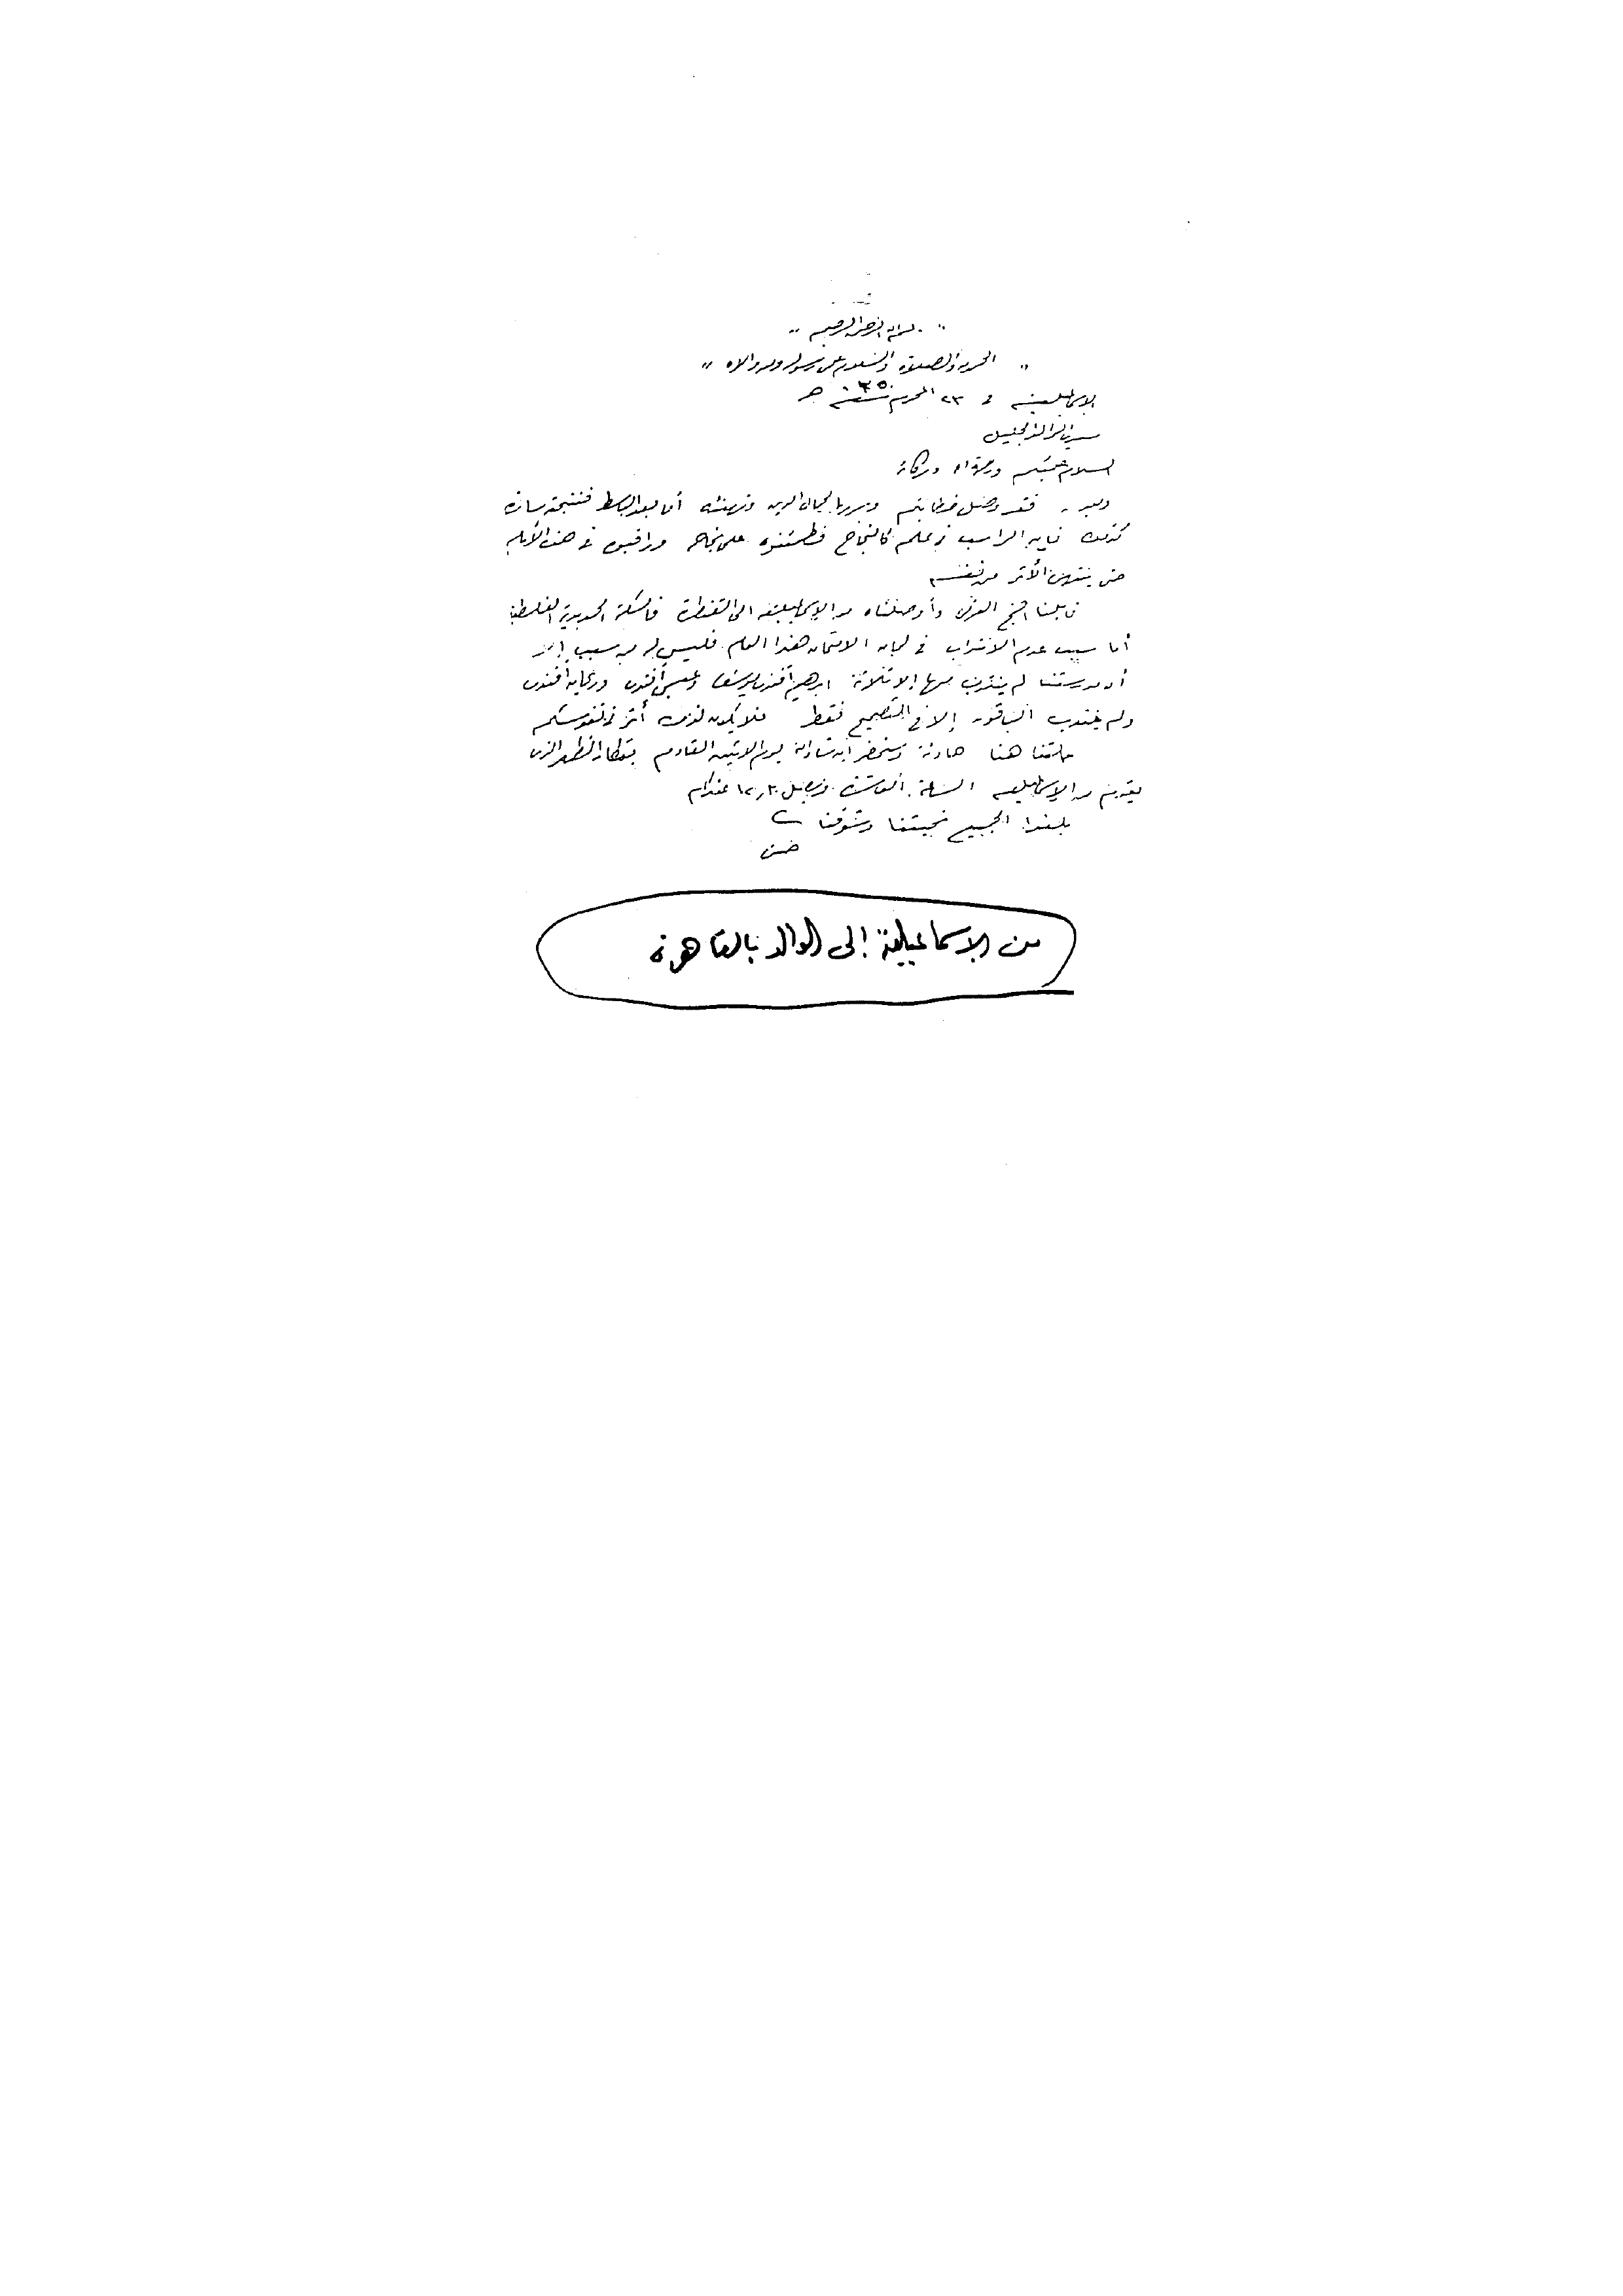 " بسم الله الرحمن الرحيم "
" الحمد لله والصلاة والسلام على رسوله ومن والاه "
الإسماعيلية في ٢٣ المحرم سنة ١٣٥٠ هـ
سيدي الوالد الجليل
السلام عليكم ورحمة الله وبركاته
وبعد . فقد وصل خطابكم وسررنا لجمال الدين ونهنئه أما عبد الباسط فنتيجته سارة
كذلك فإن الراسب في علم كالناجح فطمئنوه على نجاحه وراقبوه في هذه الأيام
حتى ينتهي الأثر من نفسه
قابلنا الشيخ وأوصلناه من الإسماعيلية إلى القنطرة فالسكة الحديدية لفلسطين
أما سبب عدم الانتداب في لجان الامتحان هذا العام فليس له من سبب إلا
أن مدرستنا لم ينتدب منها إلا ثلاثة ابراهيم أفندي يوسف أفندي أفندي
ولم ينتدب الباقون إلا في التصحيح فقط فلا يكون لذلك أثر في نفوسكم
حالتنا هنا هادئة وسنحضر إن شاء الله يوم الاثنين القادم بقطار الظهر الذي
يقوم من الإسماعيلية الساعة العاشرة ويصل ١٢٫٣٠ عندكم
بلغوا الجميع تحيتنا وشوقنا
حسن
من الإسماعيلية إلى الوالد بالقاهرة